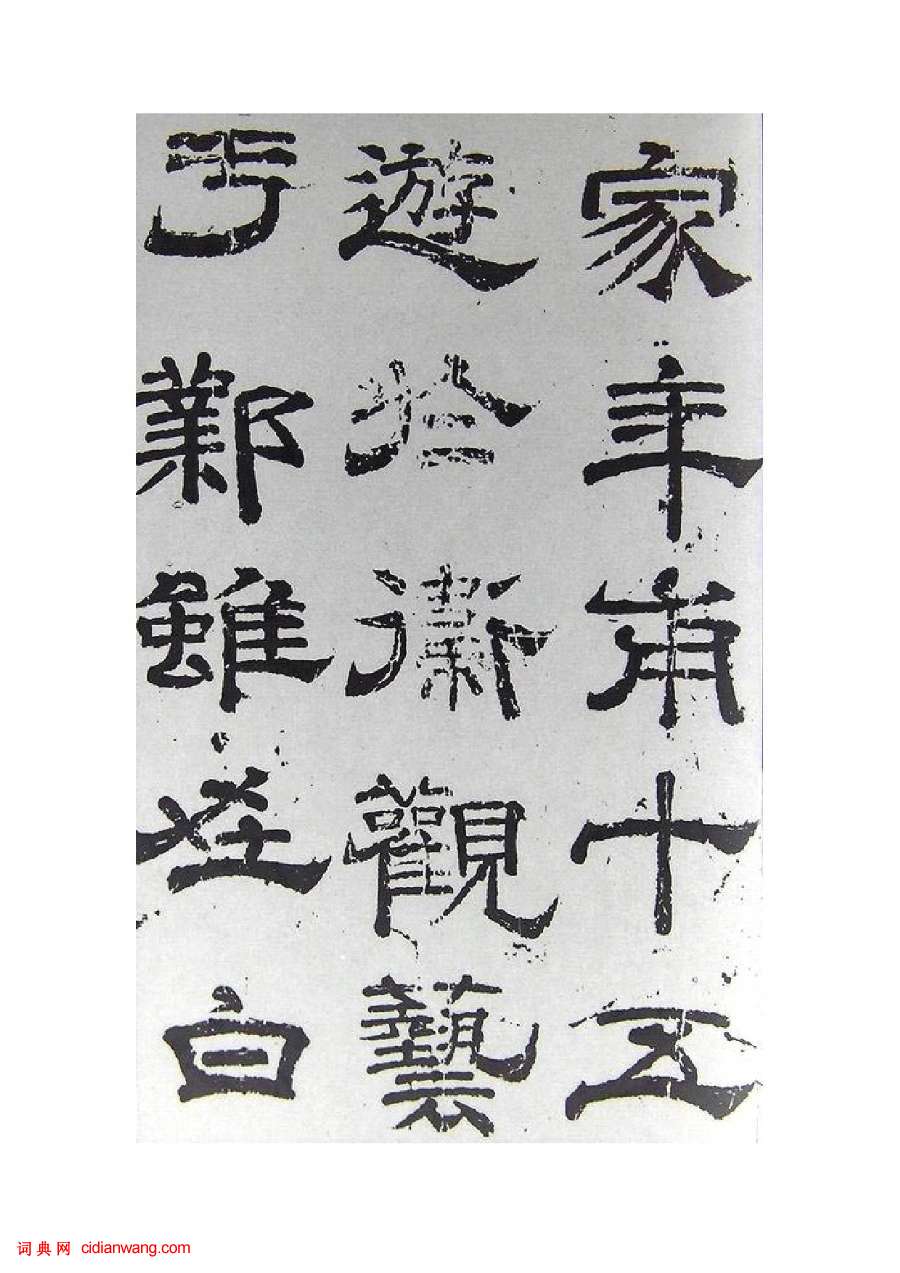 家年甫十五
遊於衛觀藝
于鄴雖在白
词典网 cidianwang.com